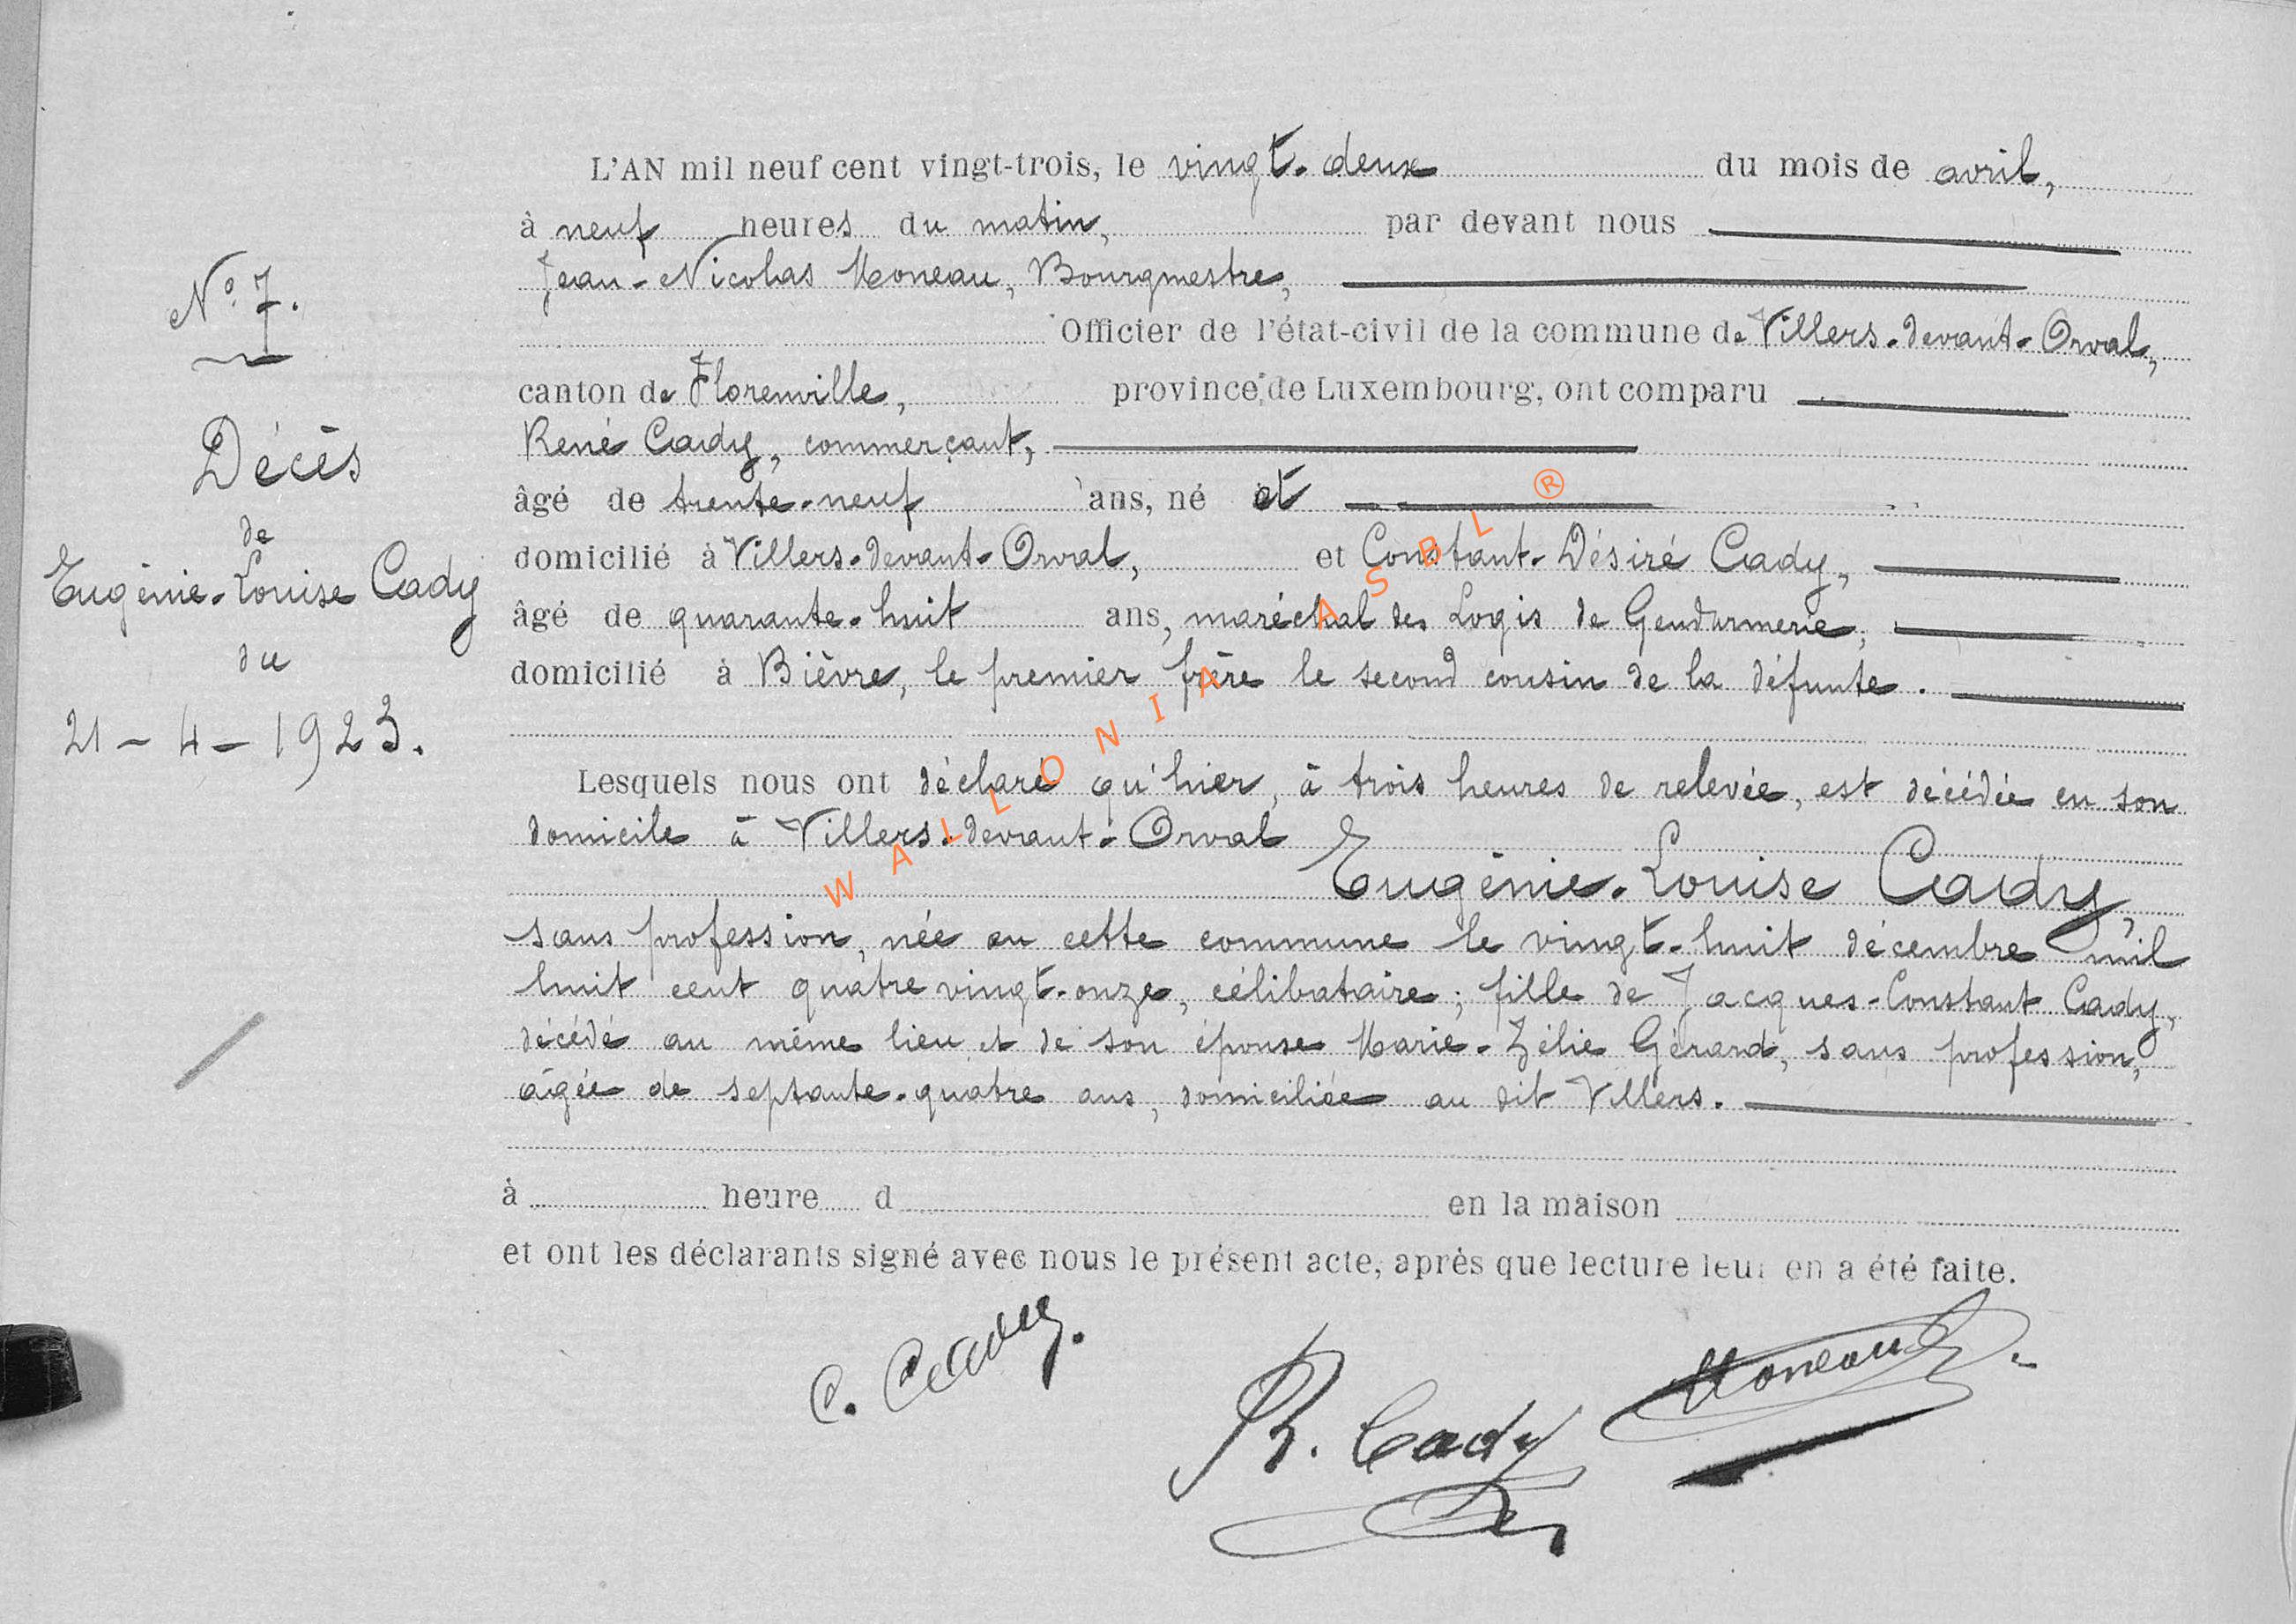 N° 7.
Décès
de
Eugénie-Louise Cady
du
21 - 4 - 1923.
L'AN mil neuf cent vingt-trois, le vingt-deux du mois de avril,
à neuf heures du matin, par devant nous
Jean-Nicolas Moneau, Bourgmestre,
Officier de l'état-civil de la commune de Villers-devant-Orval,
canton de Florenville, province de Luxembourg, ont comparu
René Cady, commerçant,
âgé de trente-neuf ans, né et
domicilié à Villers-devant-Orval, et Constant-Désiré Cady,
âgé de quarante-huit ans, maréchal des Logis de Gendarmerie,
domicilié à Bièvre, le premier frère le second cousin de la défunte.
Lesquels nous ont déclaré qu'hier, à trois heures de relevée, est décédée en son
domicile à Villers-devant-Orval
Eugénie-Louise Cady,
sans profession, née en cette commune le vingt-huit décembre mil
huit cent quatre vingt-onze, célibataire; fille de Jacques-Constant Cady,
décédé au même lieu et de son épouse Marie-Zélie Gérard, sans profession,
âgée de septante-quatre ans, domiciliée au dit Villers.
à heure d en la maison
et ont les déclarants signé avec nous le présent acte, après que lecture leur en a été faite.
C. Cady.
R. Cady
Moneau
WALLONIA ASBL ®